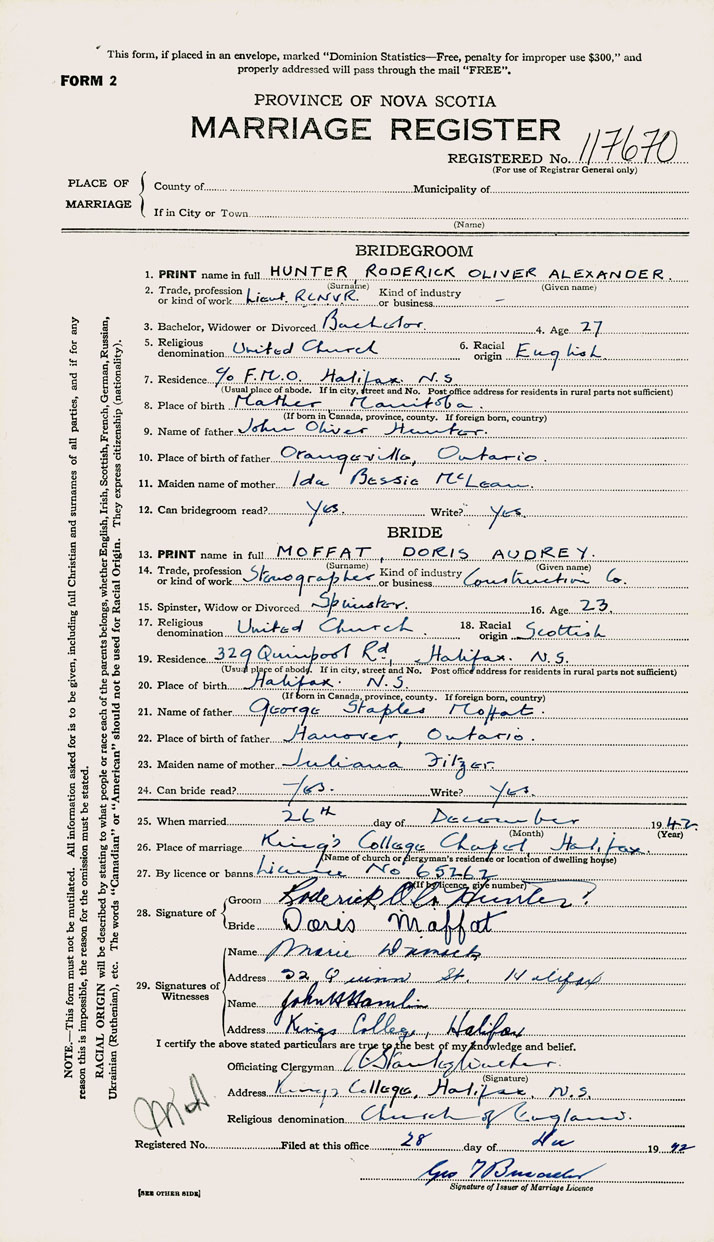 This form, if placed in an envelope, marked “Dominion Statistics—Free, penalty for improper use $300,” and
properly addressed will pass through the mail “FREE”.
FORM 2
PROVINCE OF NOVA SCOTIA
MARRIAGE REGISTER
REGISTERED No. 117670
(For use of Registrar General only)
PLACE OF MARRIAGE
County of Municipality of
If in City or Town
(Name)
BRIDEGROOM
1. PRINT name in full HUNTER RODERICK OLIVER ALEXANDER.
(Surname) (Given name)
2. Trade, profession or kind of work Lieut. RCNVR. Kind of industry or business –
3. Bachelor, Widower or Divorced Bachelor. 4. Age 27
5. Religious denomination United Church 6. Racial origin English.
7. Residence c/o F.M.O. Halifax N.S.
(Usual place of abode. If in city, street and No. Post office address for residents in rural parts not sufficient)
8. Place of birth Mather Manitoba.
(If born in Canada, province, county. If foreign born, country)
9. Name of father John Oliver Hunter.
10. Place of birth of father Orangeville, Ontario.
11. Maiden name of mother Ida Bessie McLean.
12. Can bridegroom read? Yes. Write? Yes.
BRIDE
13. PRINT name in full MOFFAT, DORIS AUDREY.
(Surname) (Given name)
14. Trade, profession or kind of work Stenographer Kind of industry or business Construction Co.
15. Spinster, Widow or Divorced Spinster. 16. Age 23.
17. Religious denomination United Church. 18. Racial origin Scottish
19. Residence 329 Quinpool Rd, Halifax. N.S.
(Usual place of abode. If in city, street and No. Post office address for residents in rural parts not sufficient)
20. Place of birth Halifax. N.S.
(If born in Canada, province, county. If foreign born, country)
21. Name of father George Staples Moffat.
22. Place of birth of father Hanover, Ontario.
23. Maiden name of mother Juliana Filzer.
24. Can bride read? Yes. Write? Yes.
25. When married 26th day of December 1942.
(Month) (Year)
26. Place of marriage King's College Chapel Halifax.
(Name of church or clergyman's residence or location of dwelling house)
27. By licence or banns Licence No 65262
(If by licence, give number)
28. Signature of
Groom Roderick O A Hunter
Bride Doris Moffat
29. Signatures of Witnesses
Name Marie
Address 22 Quinn St. Halifax
Name John H Hamlin
Address Kings College, Halifax
I certify the above stated particulars are true to the best of my knowledge and belief.
Officiating Clergyman Walker.
(Signature)
Address King's College, Halifax, N.S.
Religious denomination Church of England.
Registered No. Filed at this office 28 day of Dec 1942
Geo
Signature of Issuer of Marriage Licence
[SEE OTHER SIDE]
NOTE.—This form must not be mutilated. All information asked for is to be given, including full Christian and surnames of all parties, and if for any
reason this is impossible, the reason for the omission must be stated.
RACIAL ORIGIN will be described by stating to what people or race each of the parents belongs, whether English, Irish, Scottish, French, German, Russian,
Ukrainian (Ruthenian), etc. The words “Canadian” or “American” should not be used for Racial Origin. They express citizenship (nationality).